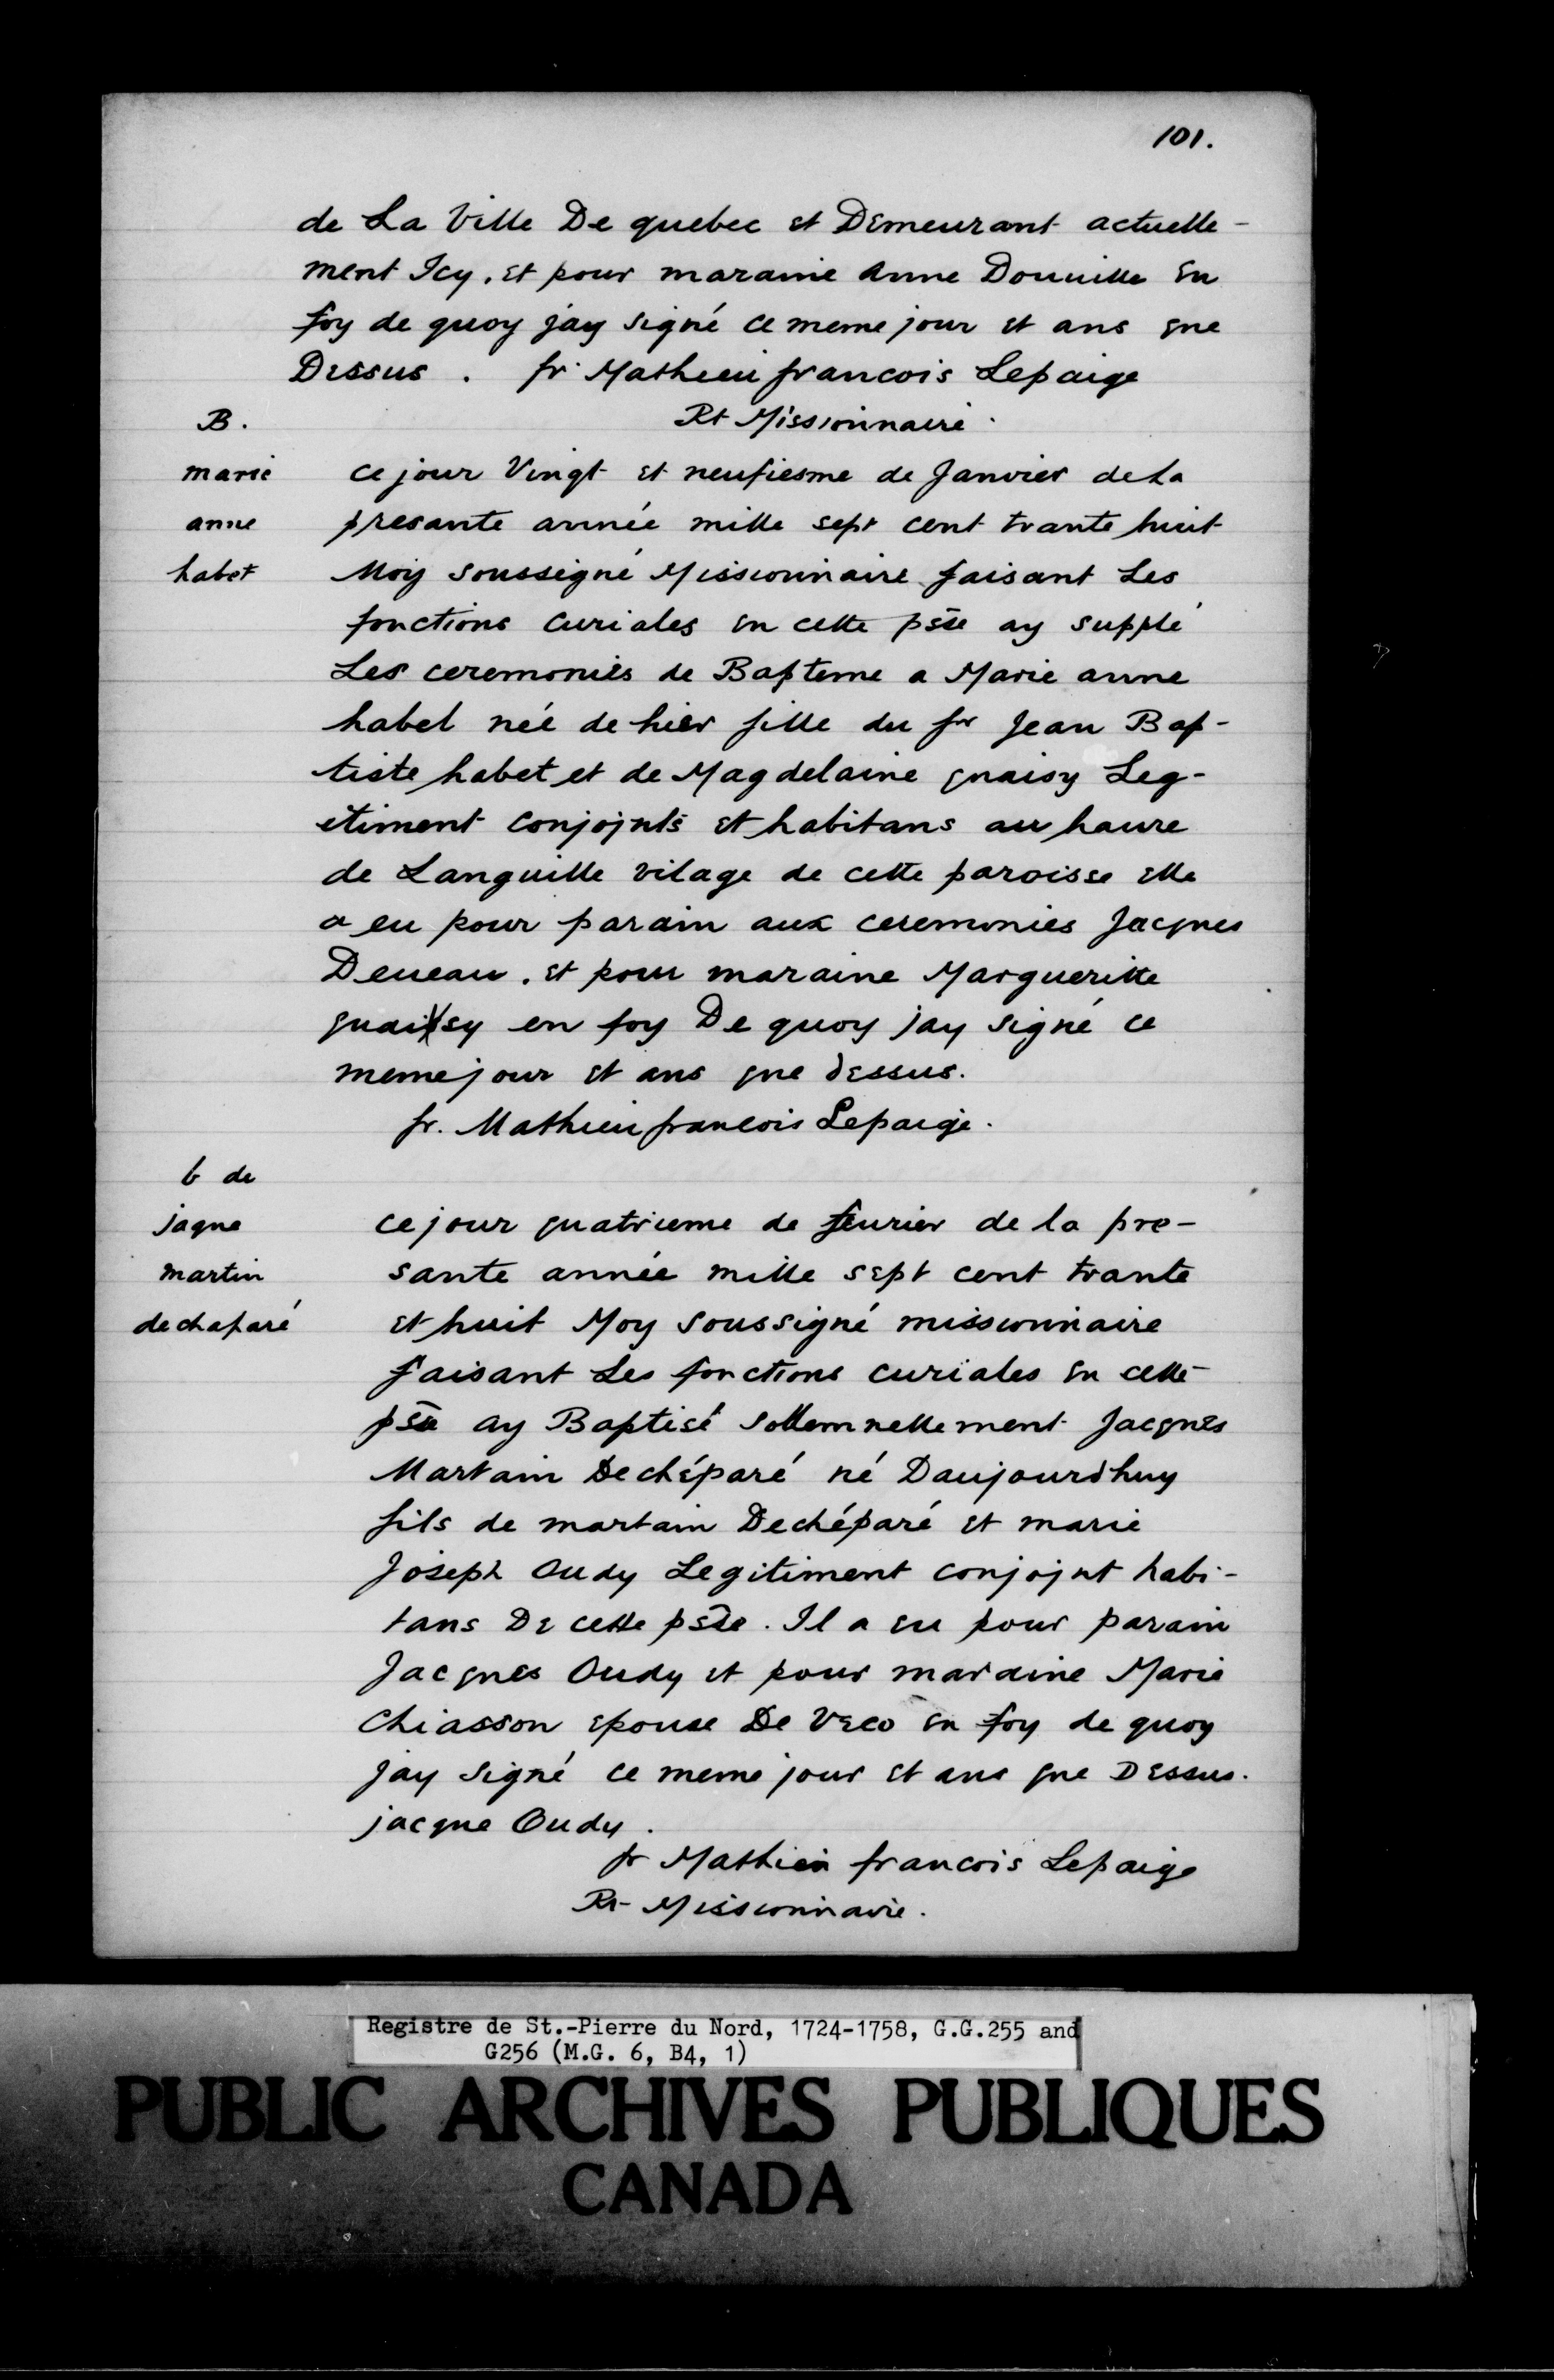 101.
de La Ville De quebec et Demeurant actuelle-
ment Icy, et pour maraine Anne Douuille en
foy de quoy jay signé ce meme jour et ans que
Dessus. fr Mathieu francois Lepaige
Rt Missionnaire.
B.
marie
anne
habet
ce jour Vingt et neufiesme de Janvier de La
presante année mille sept cent trante huit
Moy soussigné Missionnaire faisant Les
fonctions curiales en cette psse ay supplé
Les ceremonies de Bapteme a Marie anne
habel née de hier fille du sr Jean Bap-
tiste habet et de Magdelaine quaisy Leg-
itiment conjojnts et habitans au haure
de Languille vilage de cette paroisse elle
a eu pour parain aux ceremonies Jacques
Deueau. et pour maraine Margueritte
quaisy en foy De quoy jay signé ce
meme jour et ans que dessus.
fr. Mathieu francois Lepaige.
b de
jaque
martin
dechaparé
ce jour quatrieme de feurier de la pre-
sante année mille sept cent trante
et huit Moy soussigné missionnaire
faisant Les fonctions curiales en cette
psse ay Baptisé sollemnellement Jacques
Martain Dechéparé né Daujourdhuy
fils de martain Dechéparé et marie
Joseph Oudy Legitiment conjojnt habi-
tans De cette psse. Il a eu pour parain
Jacques Oudy et pour maraine Marie
Chiasson epouse De Veco en foy de quoy
jay signé ce meme jour et ans que Dessus.
jacque Oudy.
fr Mathieu francois Lepaige
Rt Missionnaire.
Registre de St.-Pierre du Nord, 1724-1758, G.G.255 and
G256 (M.G. 6, B4, 1)
PUBLIC ARCHIVES PUBLIQUES
CANADA